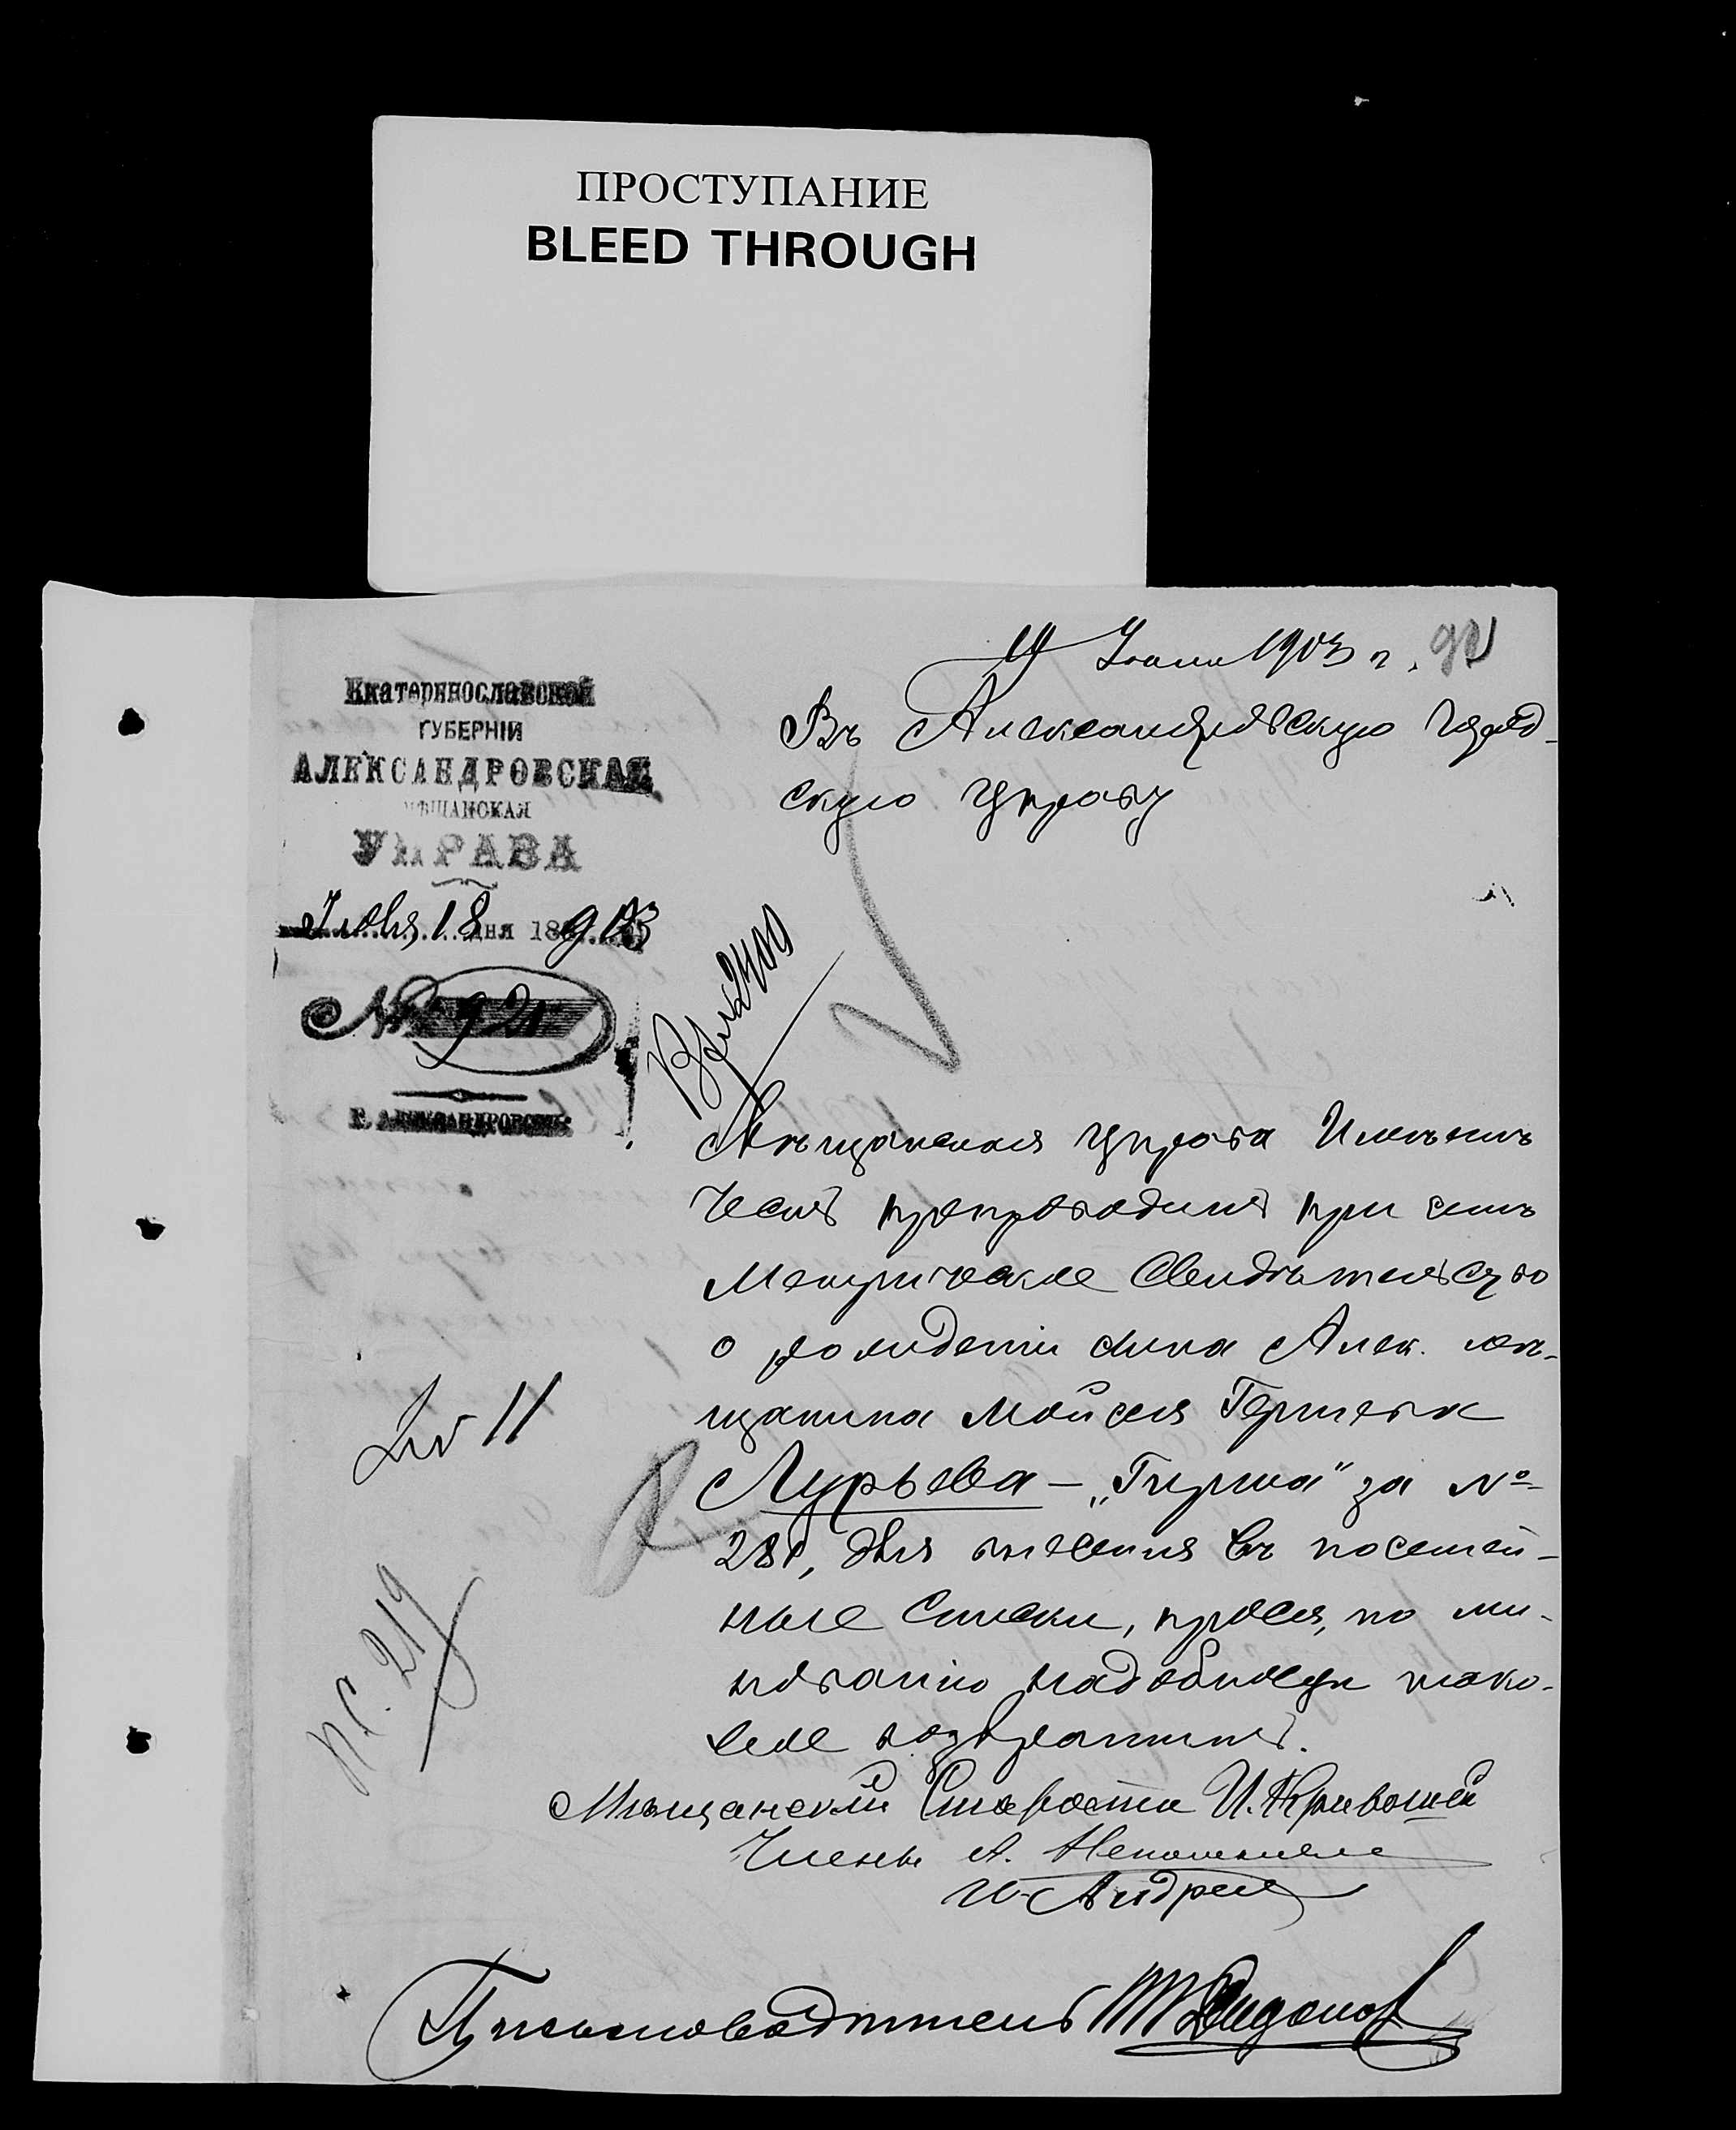 ПРОСТУПАНИЕ
BLEED THROUGH
19 Іюня 1903 г.
Екатеринославской
ГУБЕРНІИ
АЛЕКСАНДРОВСКАЯ
МѢЩАНСКАЯ
УПРАВА
Іюня 18 дня 1903
№ 921
Г. АЛЕКСАНДРОВСКЪ
Въ Александровскую Город-
скую Управу
Мѣщанская Управа Имѣетъ
честь препроводить при семъ
Метрическое Свидѣтельство
о рожденіи сына Алек. мѣ-
щанина Мойсея
Лурьева - „Гирша" за №
281, для внесенія въ посемей-
ные Списки, прося, по ми-
нованію надобности тако-
вое возвратить.
Мѣщанскій Староста И. Кривошей
Члены А.
И. Андрей
Письмоводитель
№ 11
п/с. 219